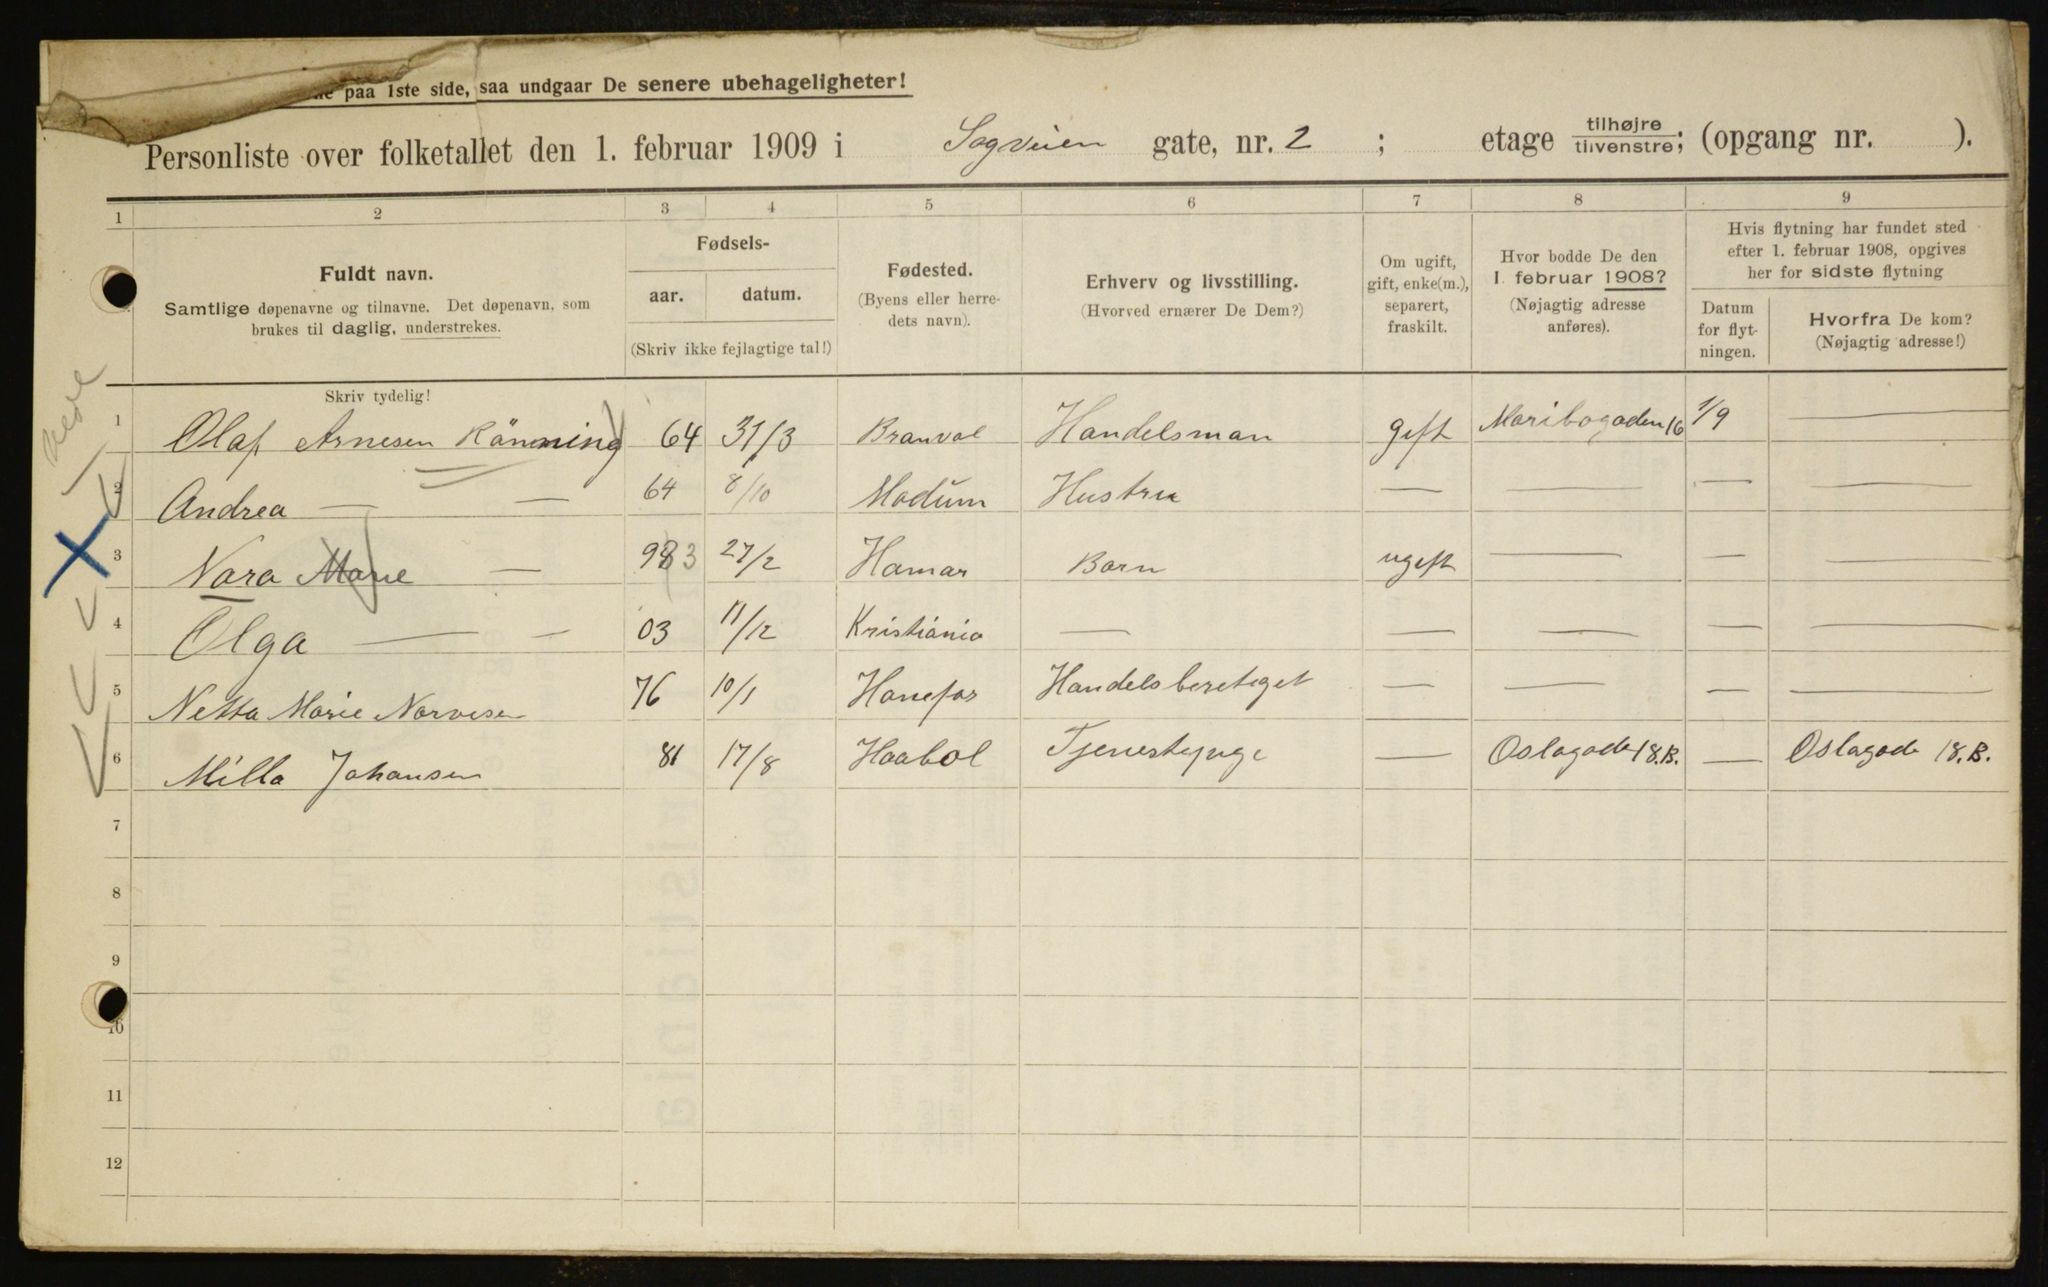 paa 1ste side, saa undgaar De senere ubehageligheter!
Personliste over folketallet den 1. februar 1909 i Sagveien gate, nr. 2 ; etage tilhøjre tilvenstre; (opgang nr. ).
1 2 3 4 5 6 7 8 9
Fuldt navn.
Samtlige døpenavne og tilnavne. Det døpenavn, som
brukes til daglig, understrekes.
Fødsels-
aar. datum.
(Skriv ikke fejlagtige tal!)
Fødested.
(Byens eller herre-
dets navn).
Erhverv og livsstilling.
(Hvorved ernærer De Dem?)
Om ugift,
gift, enke(m.),
separert,
fraskilt.
Hvor bodde De den
1. februar 1908?
(Nøjagtig adresse
anføres).
Hvis flytning har fundet sted
efter 1. februar 1908, opgives
her for sidste flytning
Datum
for flyt-
ningen.
Hvorfra De kom?
(Nøjagtig adresse!)
Skriv tydelig!
1 Olaf Arnesen Rönning 64 31/3 Branval Handelsman gift Maribogaden 16 1/9 —
2 Andrea — — 64 8/10 Modum Hustru — — — —
3 Nara Marie — 983 27/2 Hamar Barn ugift — — —
4 Olga — — 03 11/12 Kristiania — — — — —
5 Netta Marie Narvesen 76 10/1 Hanefos Handelsberetiget — — — —
6 Milla Johansen 81 17/8 Haabol Tjenestepige — Oslogade 18.B. — Oslogade 18.B.
7
8
9
10
11
12